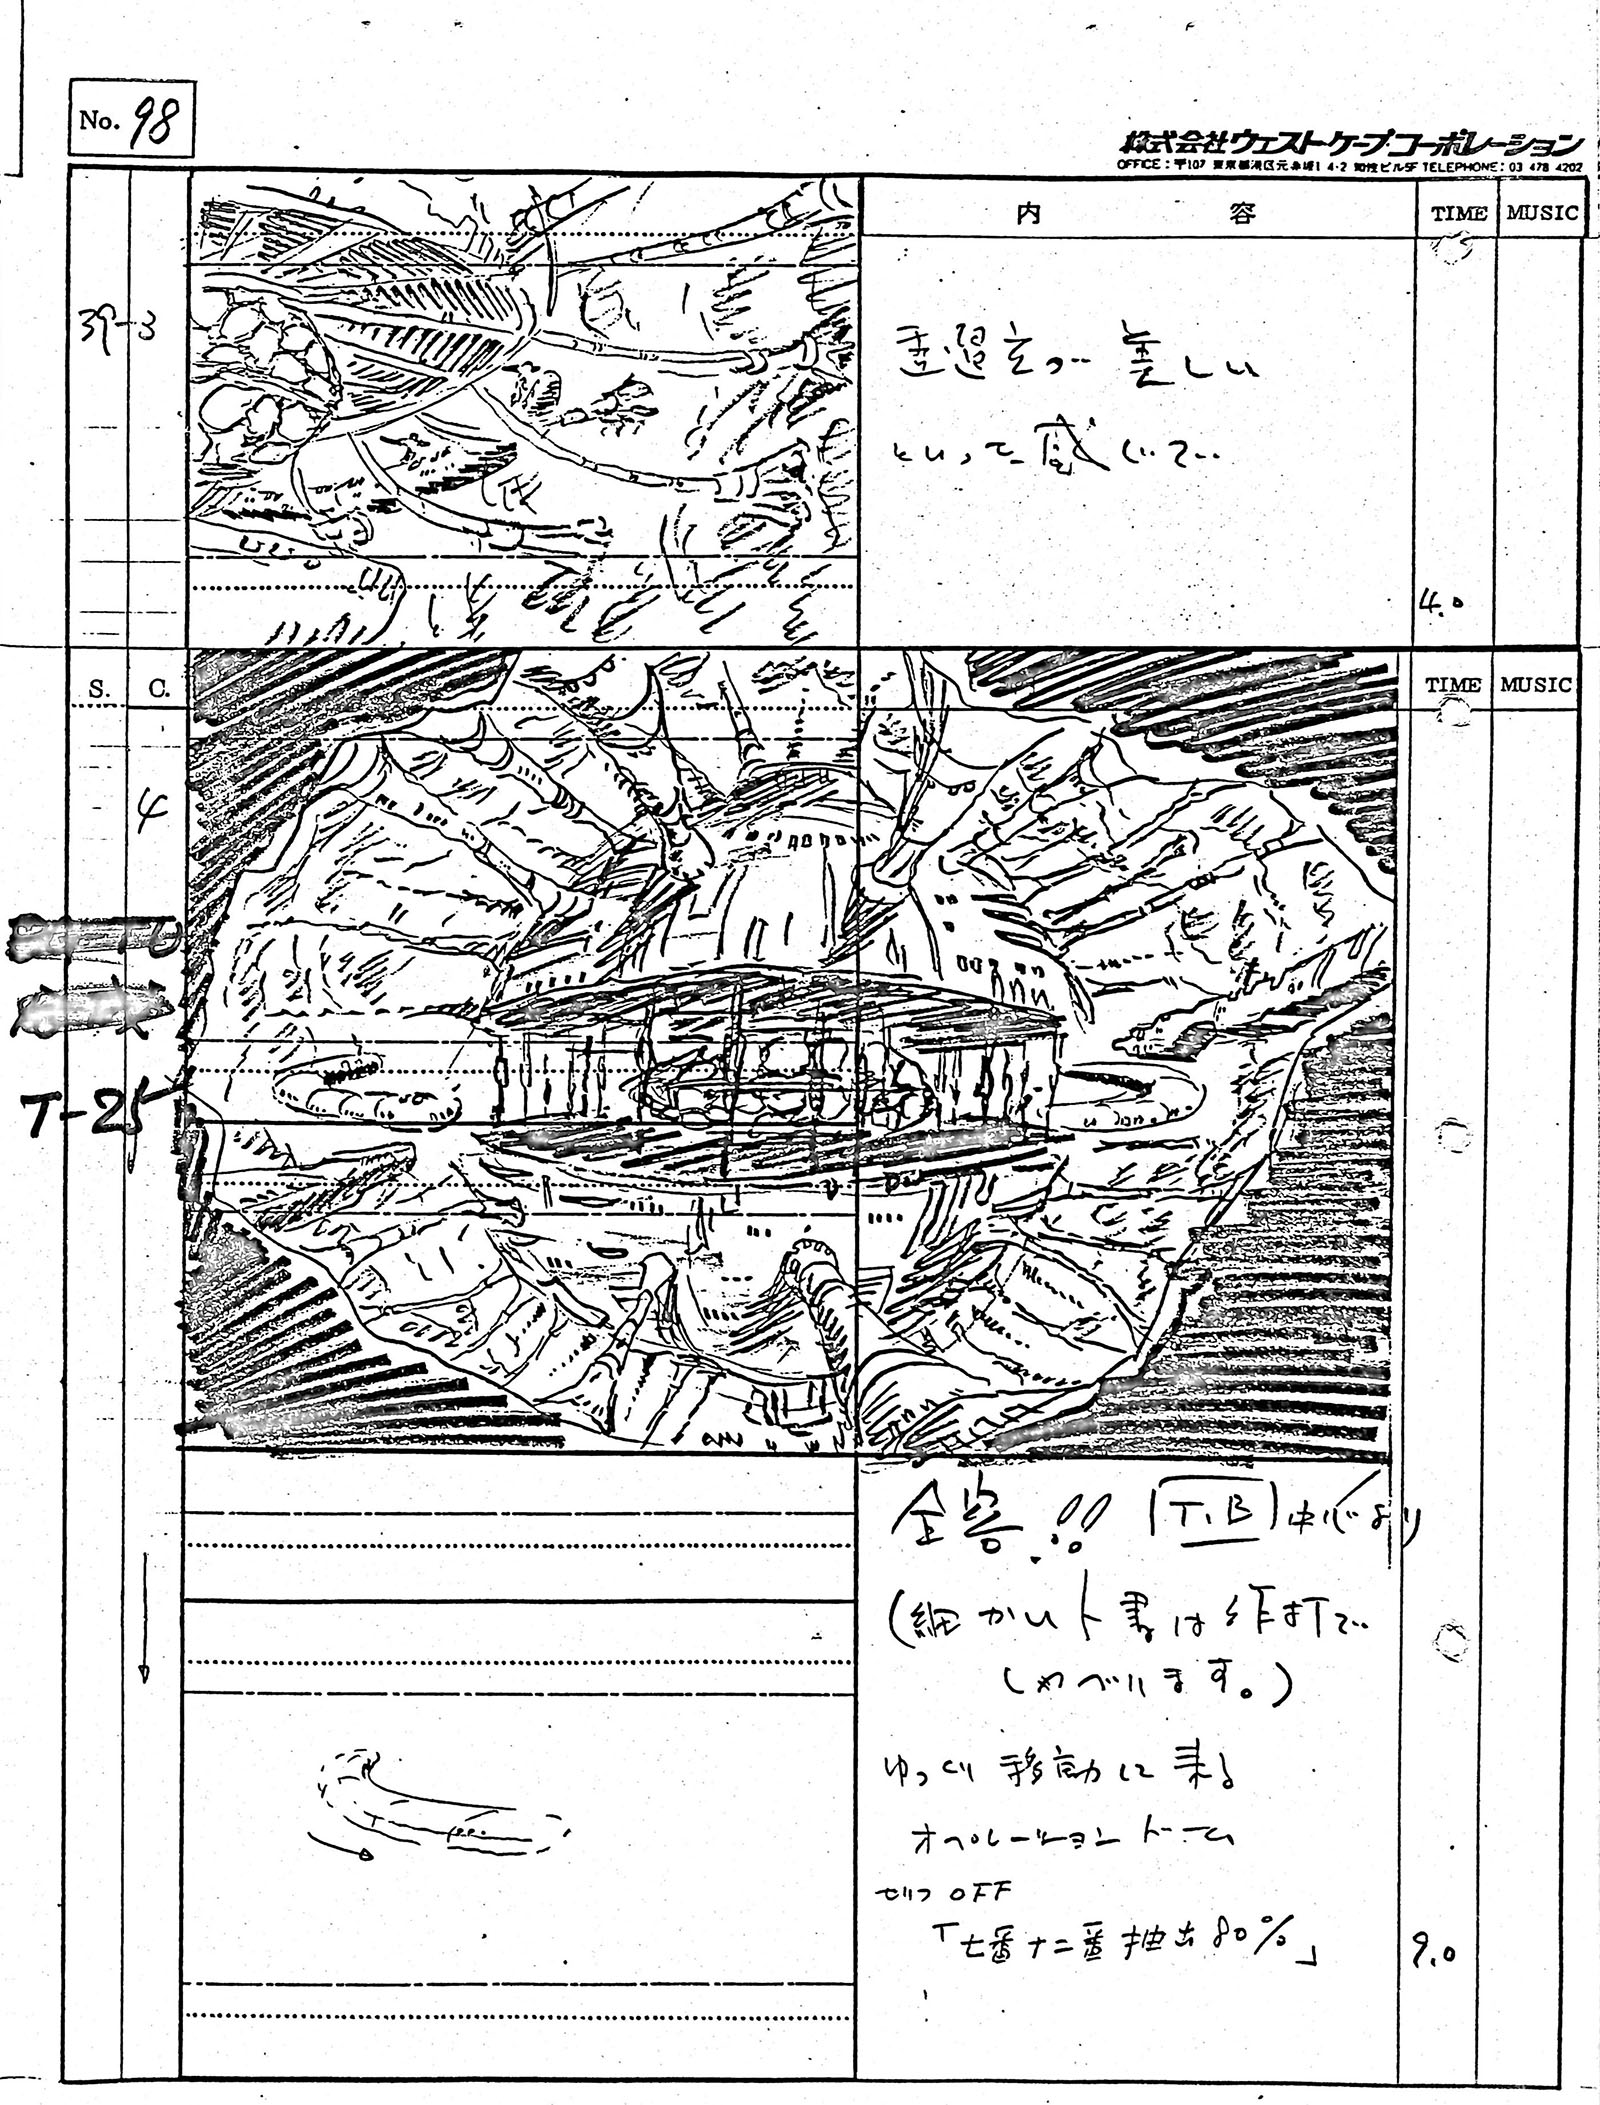 No. 98
株式会社ウェストケープ・コーポレーション
OFFICE：〒107 東京都港区元赤坂1 4-2 ビル5F TELEPHONE：03 478 4202
内 容 TIME MUSIC
39-3
美しい
といった感じで
4.0
S. C. TIME MUSIC
4
T-25
全容!! T.B 中心より
(細かいト書は作打で
しゃべります。)
ゆっくり移動に来る
オペレーションドーム
セリフ OFF
「七番十二番抽出80%」
9.0